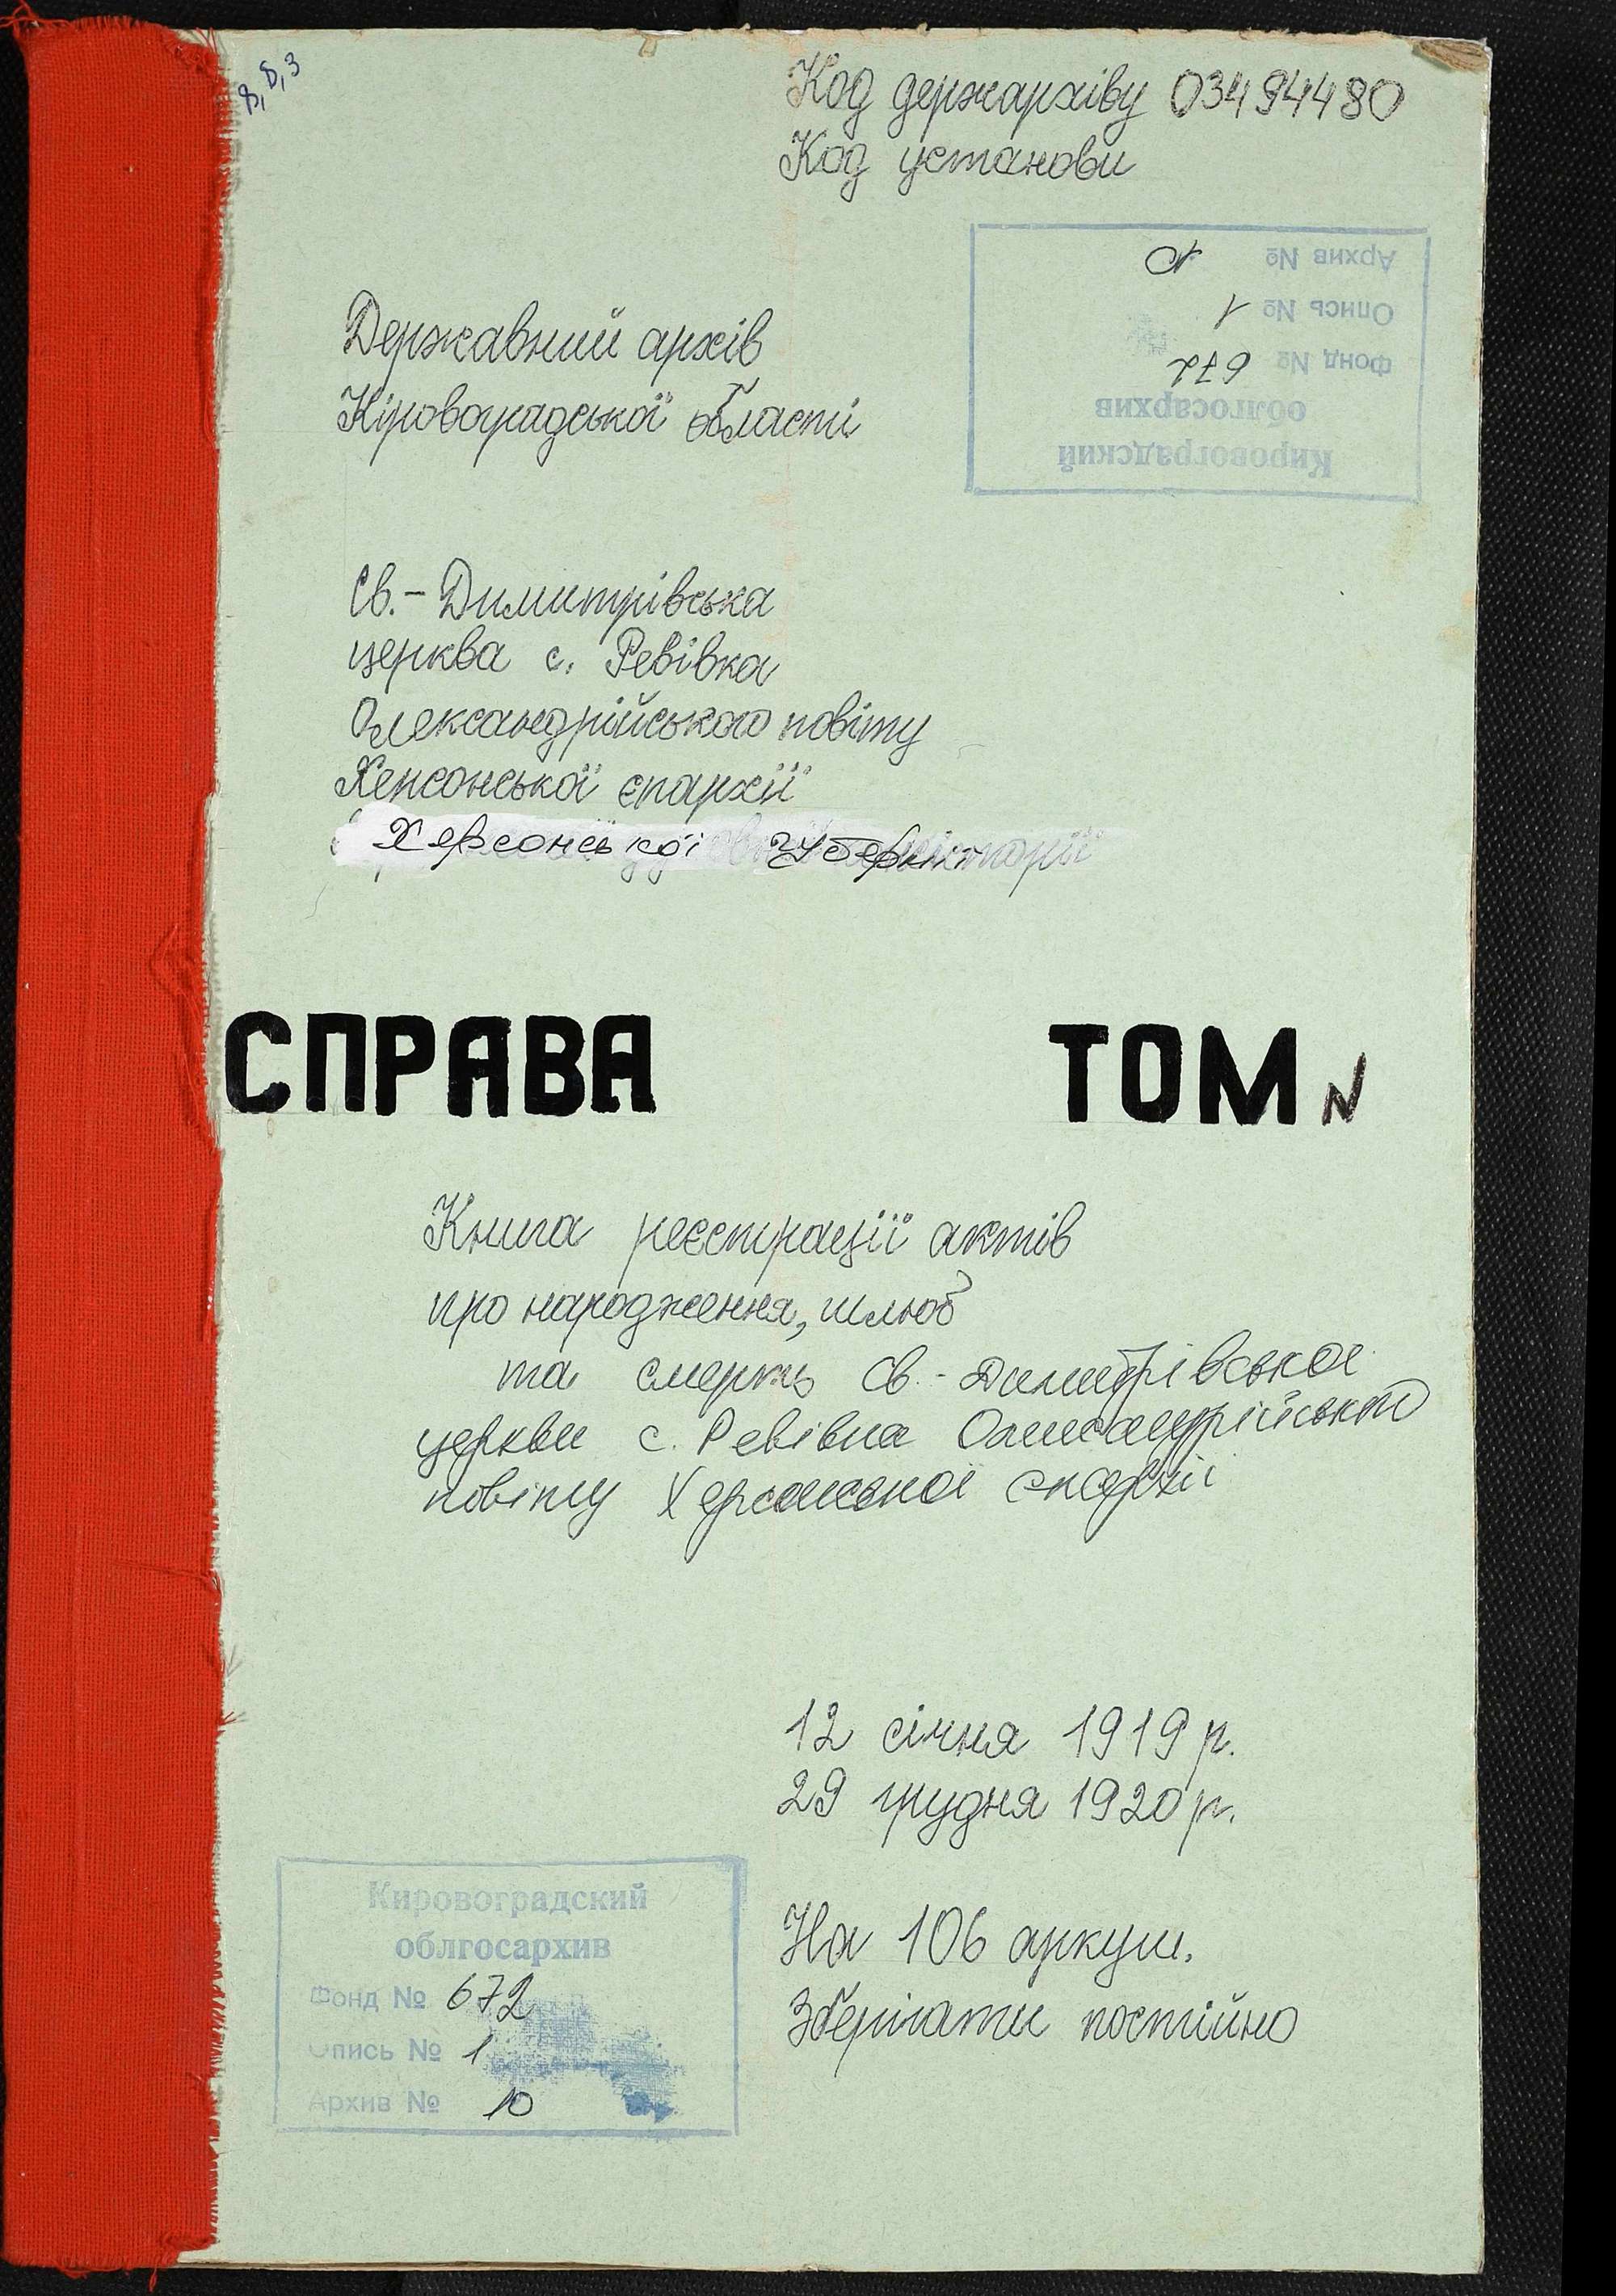 Код держархіву 03494480
Код установи
Архив №
Опись № 1
Фонд № 672
облгосархив
Кировоградский
Державний архів
Кіровоградської області
Св.- Димитрівська
церква с. Ревівка
Олександрійського повіту
Херсонської єпархії
Херсонської губернії
СПРАВА ТОМ N
Книга реєстрації актів
про народження, шлюб
та смерть Св.- Димитрівської
церкви с. Ревівка Олександрійського
повіту Херсонської єпархії
12 січня 1919 р.
29 грудня 1920 р.
На 106 аркуш.
Зберігати постійно
Кировоградский
облгосархив
Фонд № 672
Опись № 1
Архив № 10